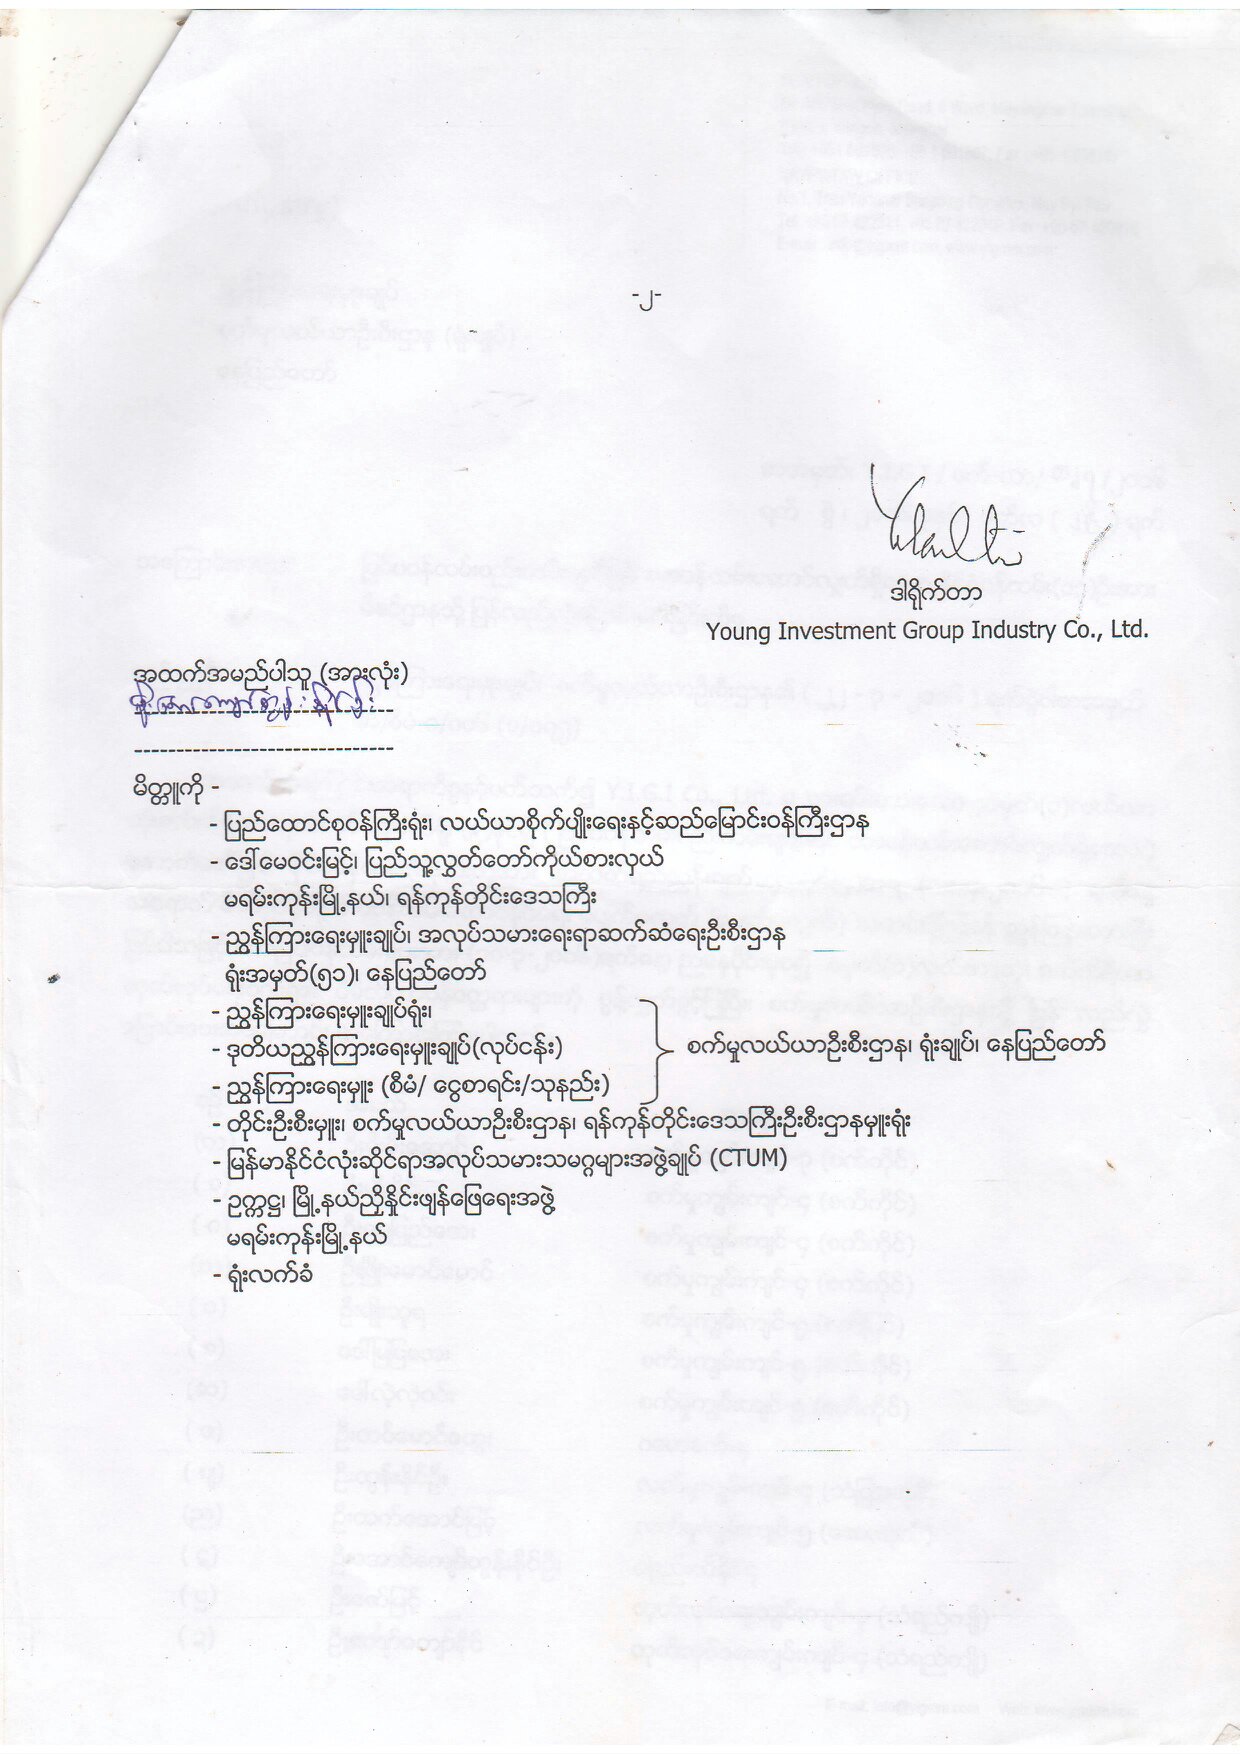 -၂-
ဒါရိုက်တာ
Young Investment Group Industry Co., Ltd.
အထက်အမည်ပါသူ (အားလုံး)
မိတ္တူကို -
- ပြည်ထောင်စုဝန်ကြီးရုံး၊ လယ်ယာစိုက်ပျိုးရေးနှင့်ဆည်မြောင်းဝန်ကြီးဌာန
- ဒေါ်မေဝင်းမြင့်၊ ပြည်သူ့လွှတ်တော်ကိုယ်စားလှယ်
မရမ်းကုန်းမြို့နယ်၊ ရန်ကုန်တိုင်းဒေသကြီး
- ညွှန်ကြားရေးမှူးချုပ်၊ အလုပ်သမားရေးရာဆက်ဆံရေးဦးစီးဌာန
ရုံးအမှတ်(၅၁)၊ နေပြည်တော်
- ညွှန်ကြားရေးမှူးချုပ်ရုံး၊
- ဒုတိယညွှန်ကြားရေးမှူးချုပ်(လုပ်ငန်း) စက်မှုလယ်ယာဦးစီးဌာန၊ ရုံးချုပ်၊ နေပြည်တော်
- ညွှန်ကြားရေးမှူး (စီမံ/ ငွေစာရင်း/သုနည်း)
- တိုင်းဦးစီးမှူး၊ စက်မှုလယ်ယာဦးစီးဌာန၊ ရန်ကုန်တိုင်းဒေသကြီးဦးစီးဌာနမှူးရုံး
- မြန်မာနိုင်ငံလုံးဆိုင်ရာအလုပ်သမားသမဂ္ဂများအဖွဲ့ချုပ် (CTUM)
- ဥက္ကဋ္ဌ၊ မြို့နယ်ညှိနှိုင်းဖျန်ဖြေရေးအဖွဲ့
မရမ်းကုန်းမြို့နယ်
- ရုံးလက်ခံ